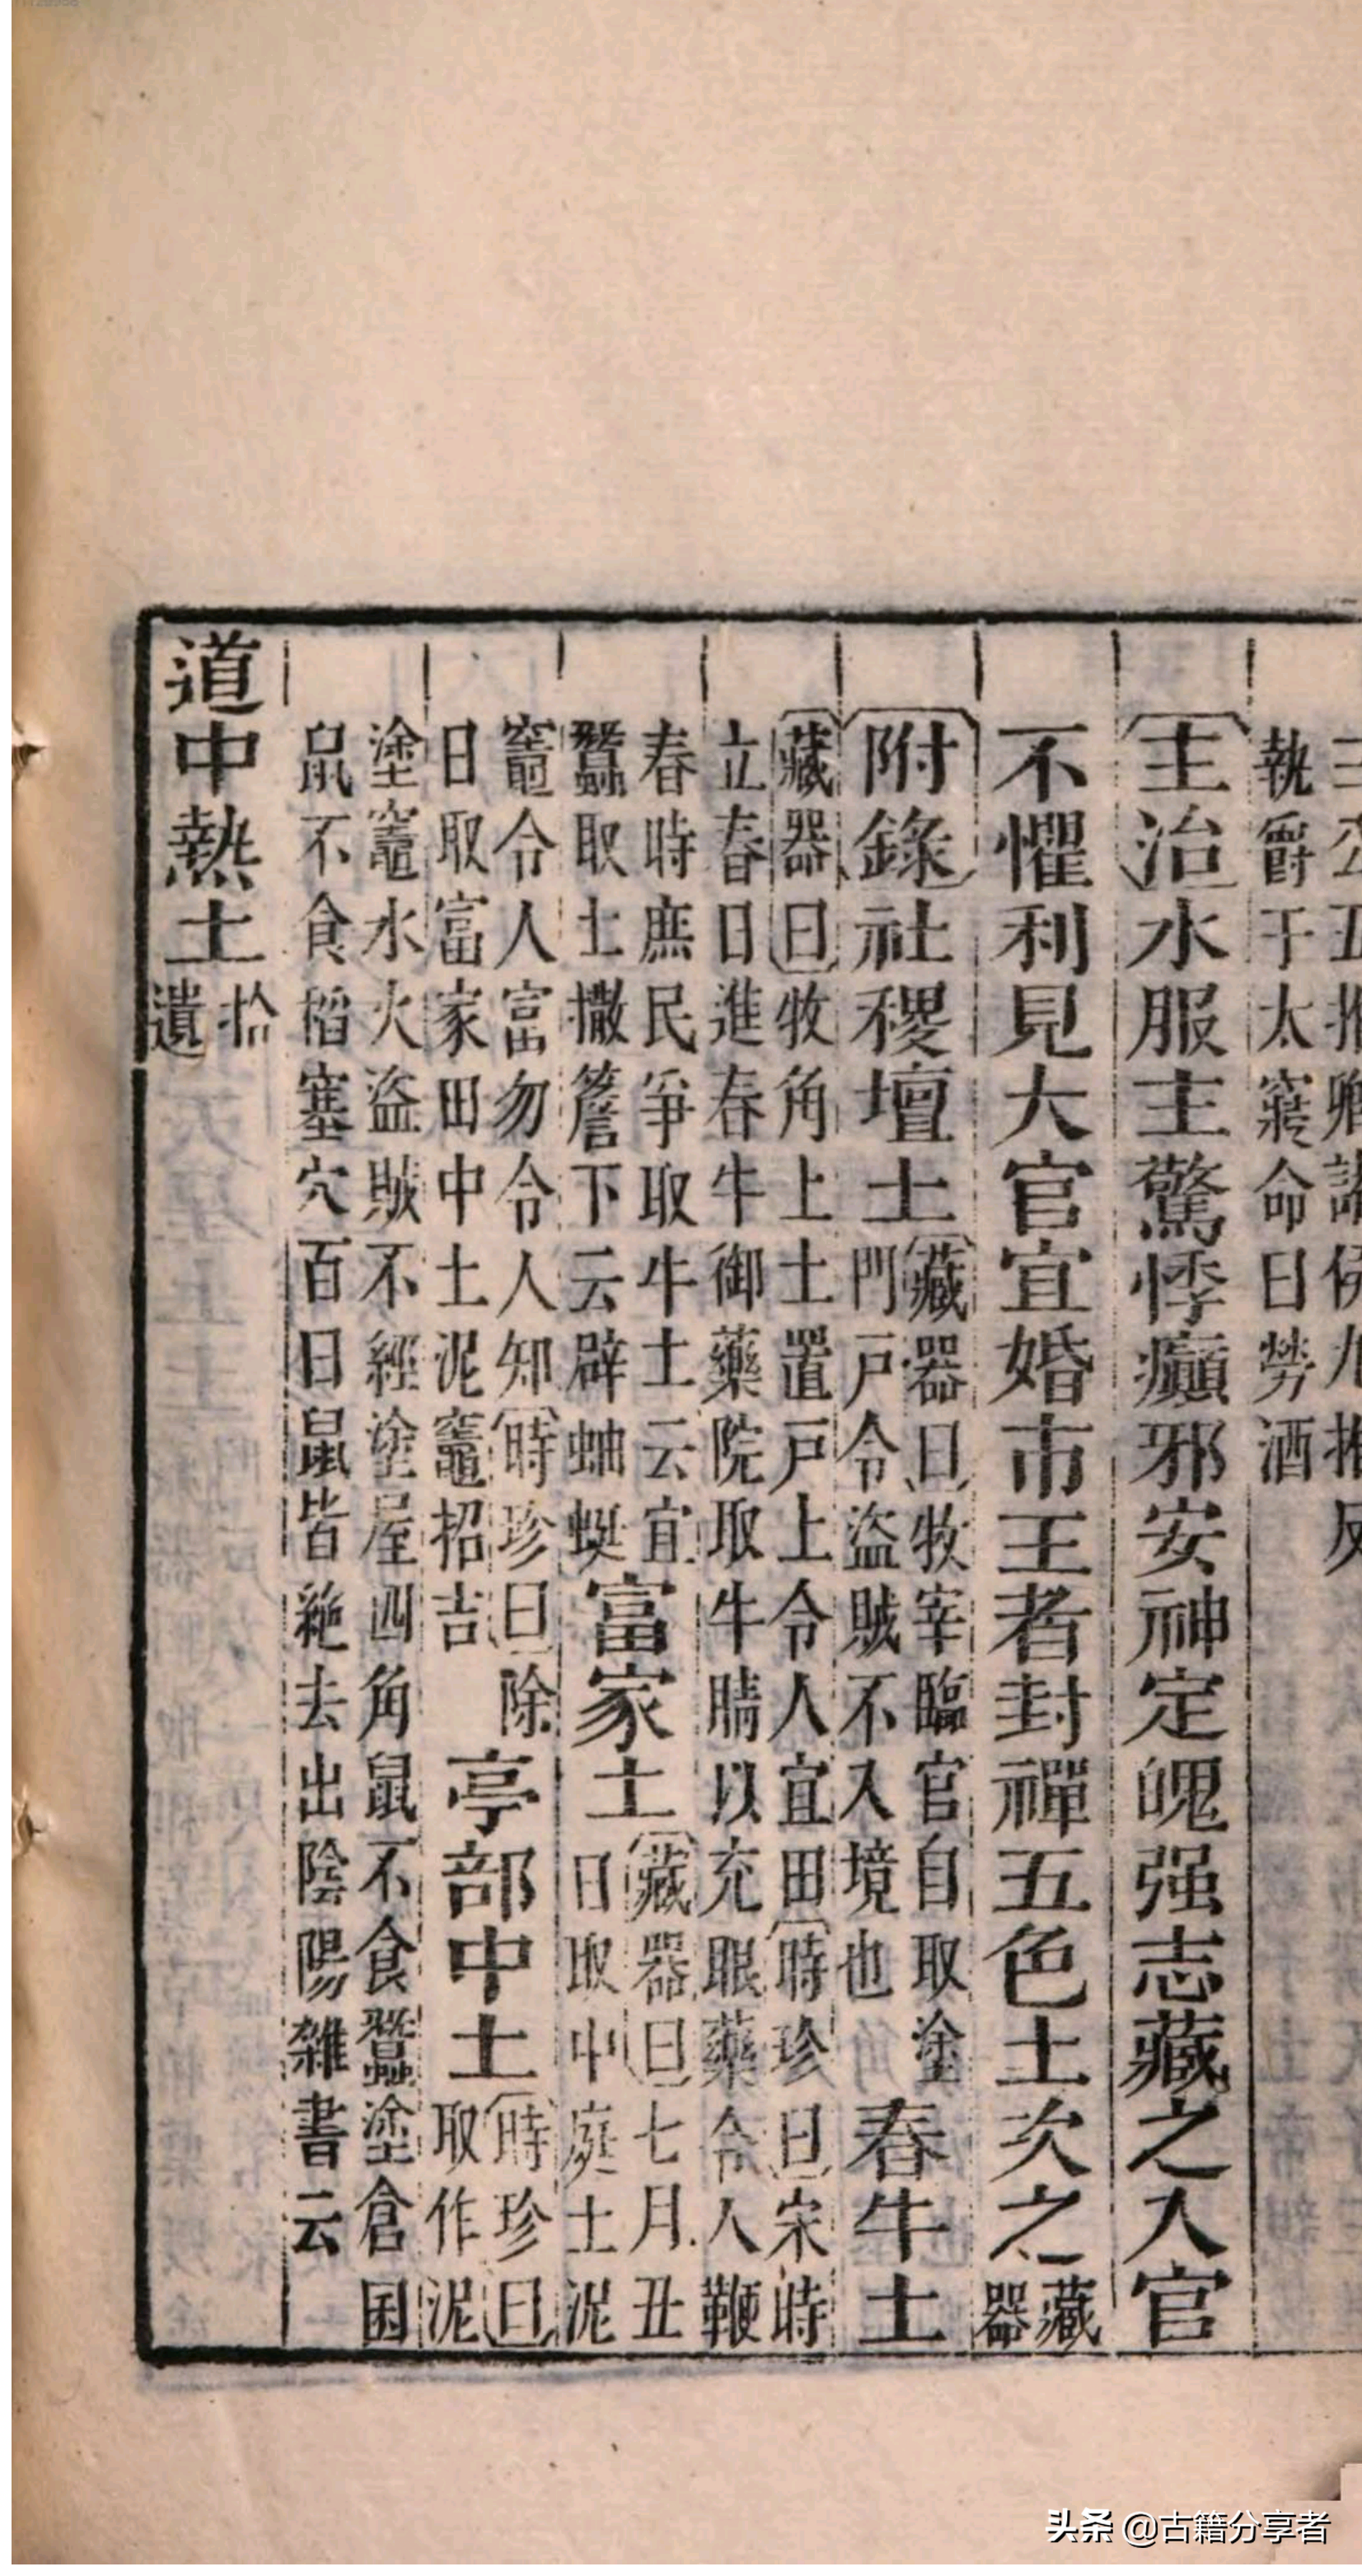 三公五推卿諸侯九推反
執爵于太寢命曰勞酒
主治水服主驚悸癲邪安神定魄强志藏之入官
不懼利見大官宜婚市王者封禪五色土次之藏器
附錄社稷壇土藏器曰牧宰臨官自取塗門戶令盜賊不入境也春牛土
藏器曰牧角上土置戶上令人宜田時珍曰宋時
立春日進春牛御藥院取牛睛以充眼藥令人鞭
春時庶民爭取牛土云宜蠶取土撒簷下云辟蚰蜒富家土藏器曰七月丑日取中庭土泥
竈令人富勿令人知時珍曰除日取富家田中土泥竈招吉亭部中土時珍曰取作泥
塗竈水火盜賊不經塗屋四角鼠不食蠶塗倉囷
鼠不食稻塞穴百日鼠皆絶去出陰陽雜書云
道中熱土拾遺
头条 @古籍分享者